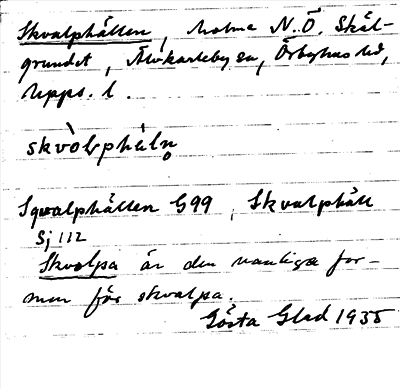 Skvalphällen, holme N.Ö. Skäl-
grundet, Älvkarleby sn, Örbyhus hd,
Upps. l.
skvòlphä̀lṇ
Sqvalphällen G99, Skvalphäll
Sj 112
Skvolpa är den vanliga for-
men för skvalpa.
Gösta Glad 1935